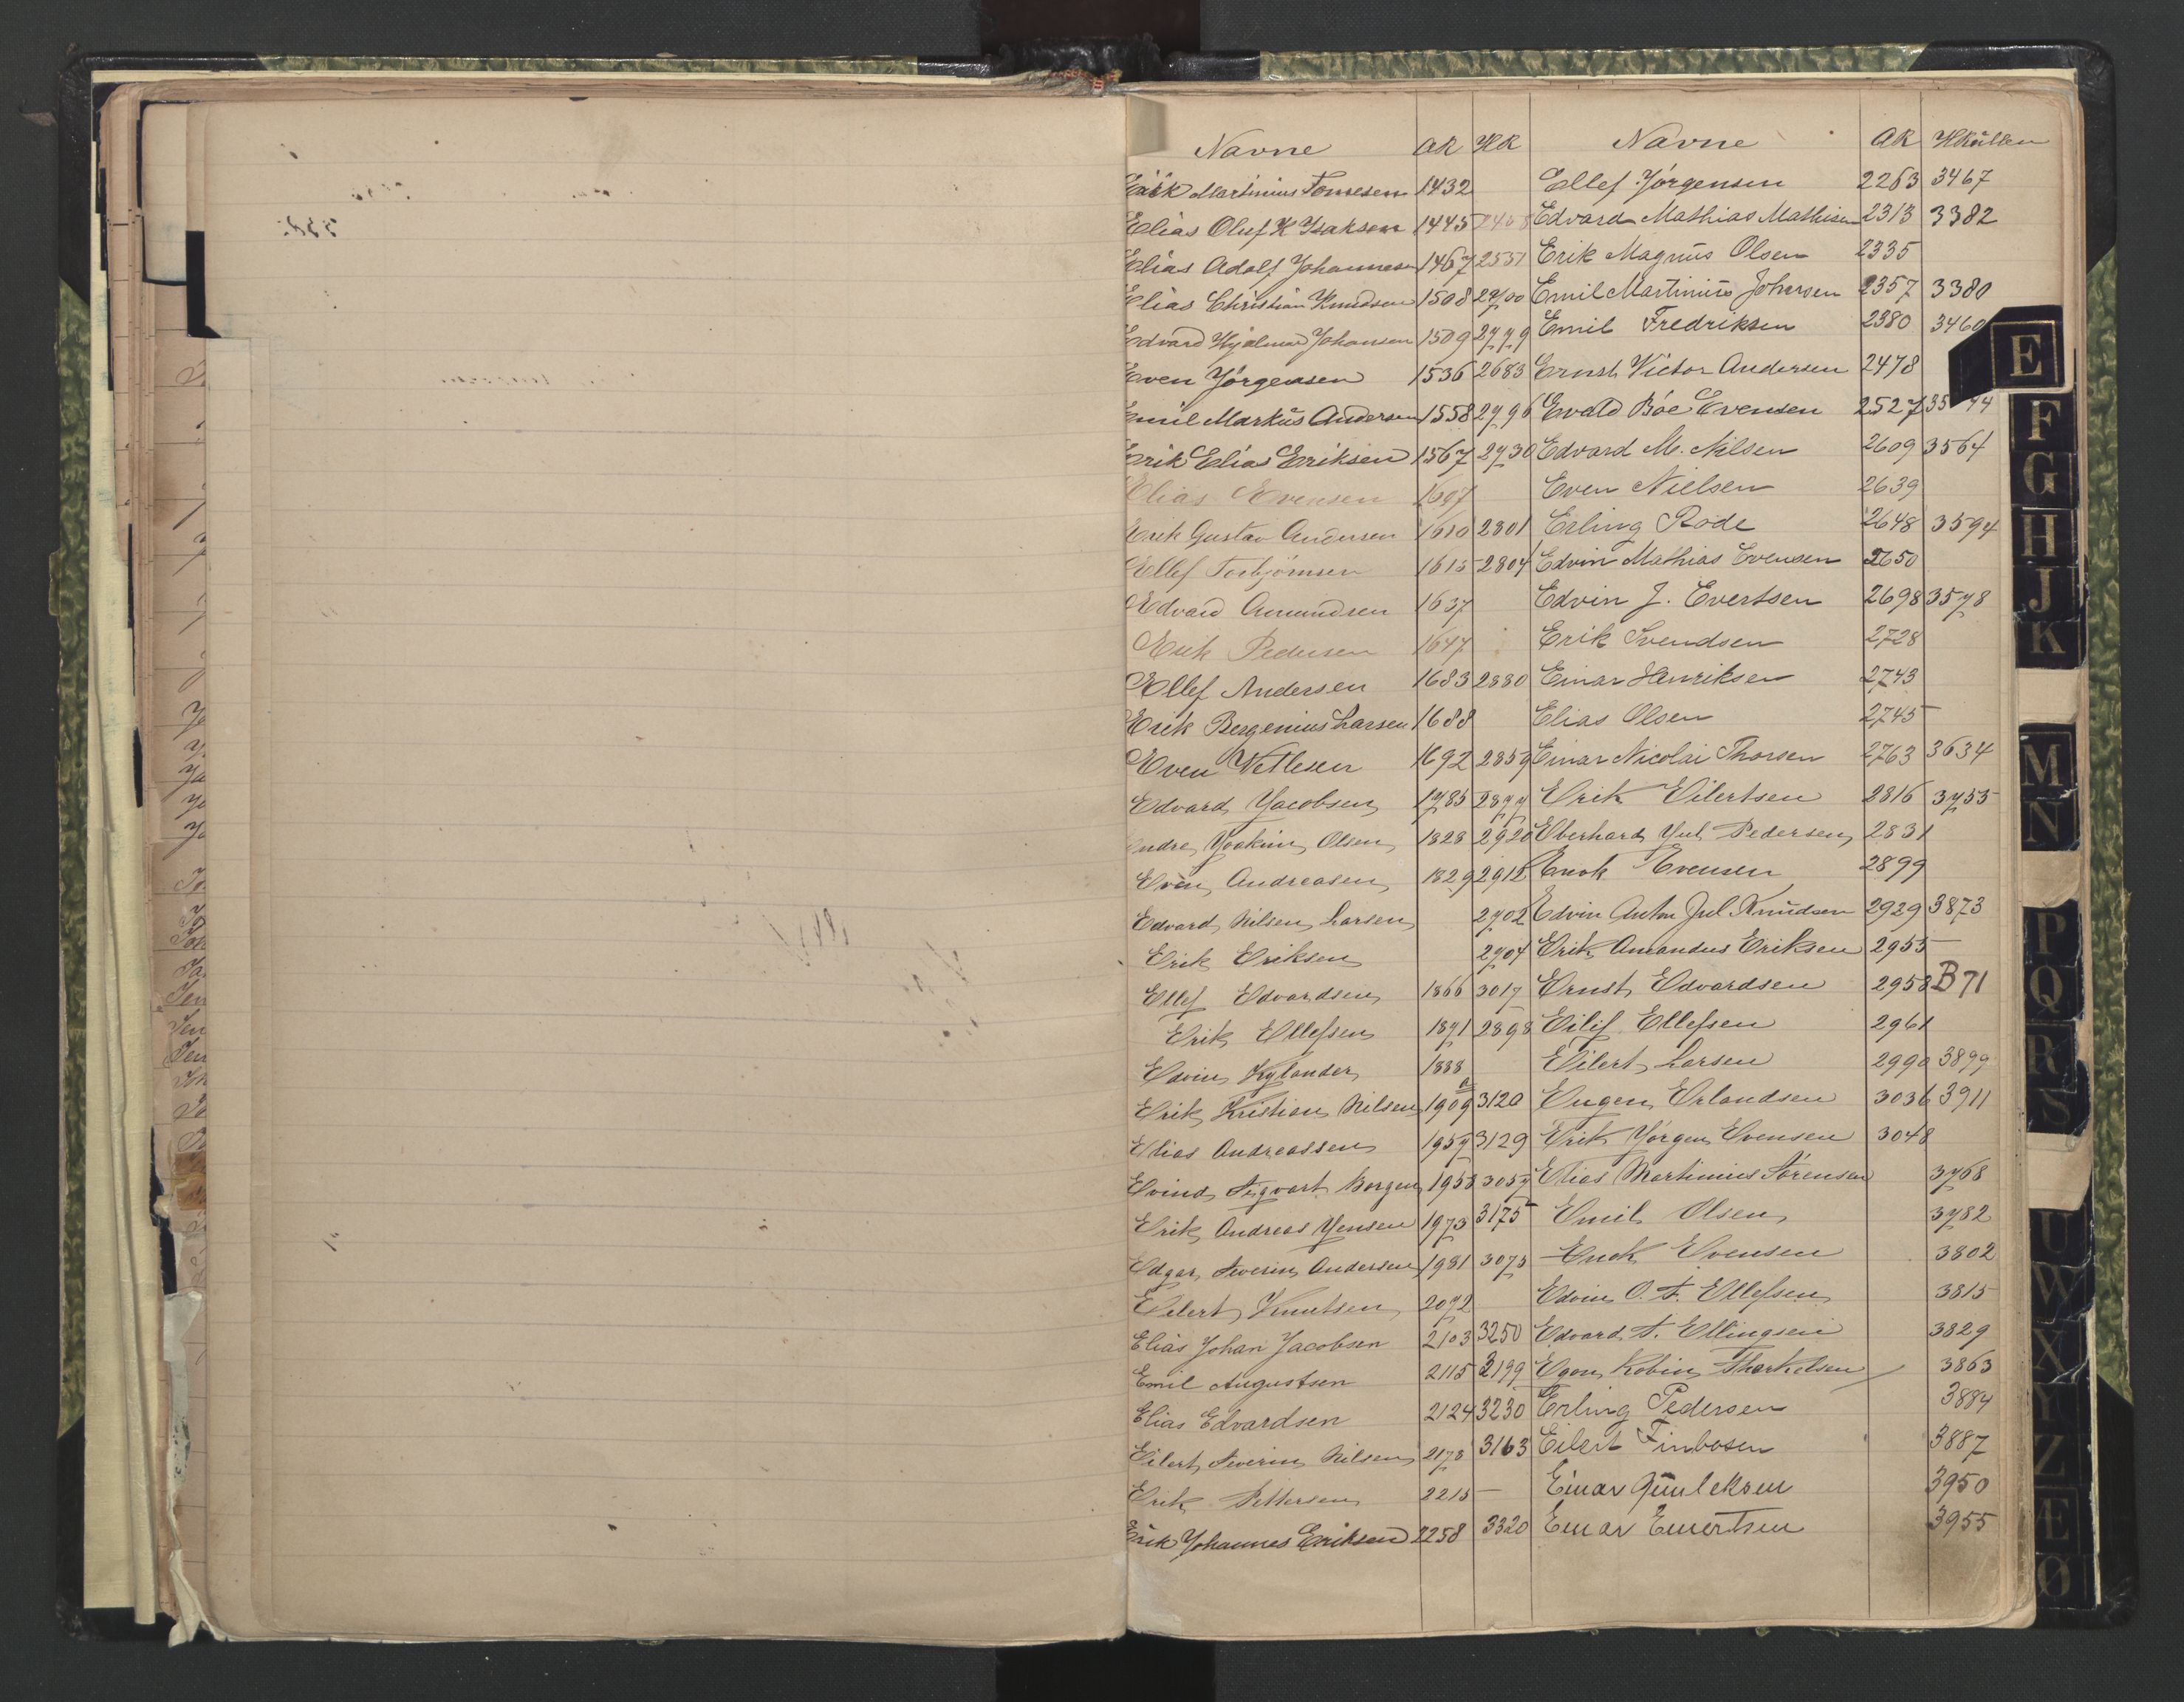 Navne AR HR Navne AR HRullen
Erik Martinius Tomesen 1432 Ellef Jörgensen 2263 3467
Elias Oluf K Isaksen 1445 Edvard Mathias Mathisen 2313 3382
Elias Adolf Johannesen 1467 2537 Erik Magnus Olsen 2335
Elias Christian Knudsen 1508 2700 Emil Martinius Johnsen 2357 3380
Edvard Hjalmar Johansen 1509 2779 Emil Fredriksen 2380 3460
Even Jörgensen 1536 2683 Ernst Victor Andersen 2478
Emil Markus Andersen 1558 2796 Evald Böe Evensen 2527 35 44
Erik Elias Eriksen 1567 2730 Edvard M. Nilsen 2609 3564
Elias Evensen 1607 Even Nielsen 2639
Erik Gustav Andersen 1610 2801 Erling Rode 2648 3594
Ellef Torbjörnsen 1615 2804 Edvin Mathias Evensen 2650
Edvard Amundsen 1637 Edvin J. Evertsen 2698 3578
Erik Pedersen 1647 Erik Svendsen 2728
Ellef Andersen 1683 2880 Einar Henriksen 2743
Erik Bergenius Larsen 1688 Elias Olsen 2745
Even Vetlesen 1692 2859 Einar Nicolai Thorsen 2763 3634
Edvard Jacobsen 1785 2877 Erik Eilertsen 2816 3755
Endre Joakim Olsen 1828 2920 Eberhard Jul Pedersen 2831
Even Andreasen 1829 2912 Enok Evensen 2899
Edvard Nilsen Larsen 2702 Edvin Anton Jul. Knudsen 2929 3873
Erik Eriksen 2704 Erik Amandus Eriksen 2955
Ellef Edvardsen 1866 3017 Ernst Edvardsen 2958 B71
Erik Ellefsen 1871 2898 Eilif Ellefsen 2961
Edvin Kylander 1888 Eilert Larsen 2990 3899
Erik Kristian Nilsen 1909 a 3120 Eugen Erlandsen 3036 3911
Elias Andreassen 1957 3129 Erik Jörgen Evensen 3048
Eivind Sigvart Borgen 1958 3057 Elias Martinius Sörensen 3768
Erik Andreas Jensen 1973 3175 Emil Olsen 3782
Edgar Severin Andersen 1981 3073 Enok Evensen 3802
Eilert Knutsen 2072 Edvin O. S. Ellefsen 3815
Elias Johan Jacobsen 2103 3250 Edvard S. Ellingsen 3829
Emil Augustsen 2115 3199 Egon Robin Thorkelsen 3863
Elias Edvardsen 2124 3230 Erling Pedersen 3884
Eilert Severin Nilsen 2178 3163 Eilert Finbosen 3887
Erik Pettersen 2215 — Einar Gunleksen 3950
Erik Johannes Eriksen 2258 3320 Einar Einertsen 3955
E
F
G
H
J
K
M
N
P
Q
R
S
U
W
X
Y
Z
Æ
Ø